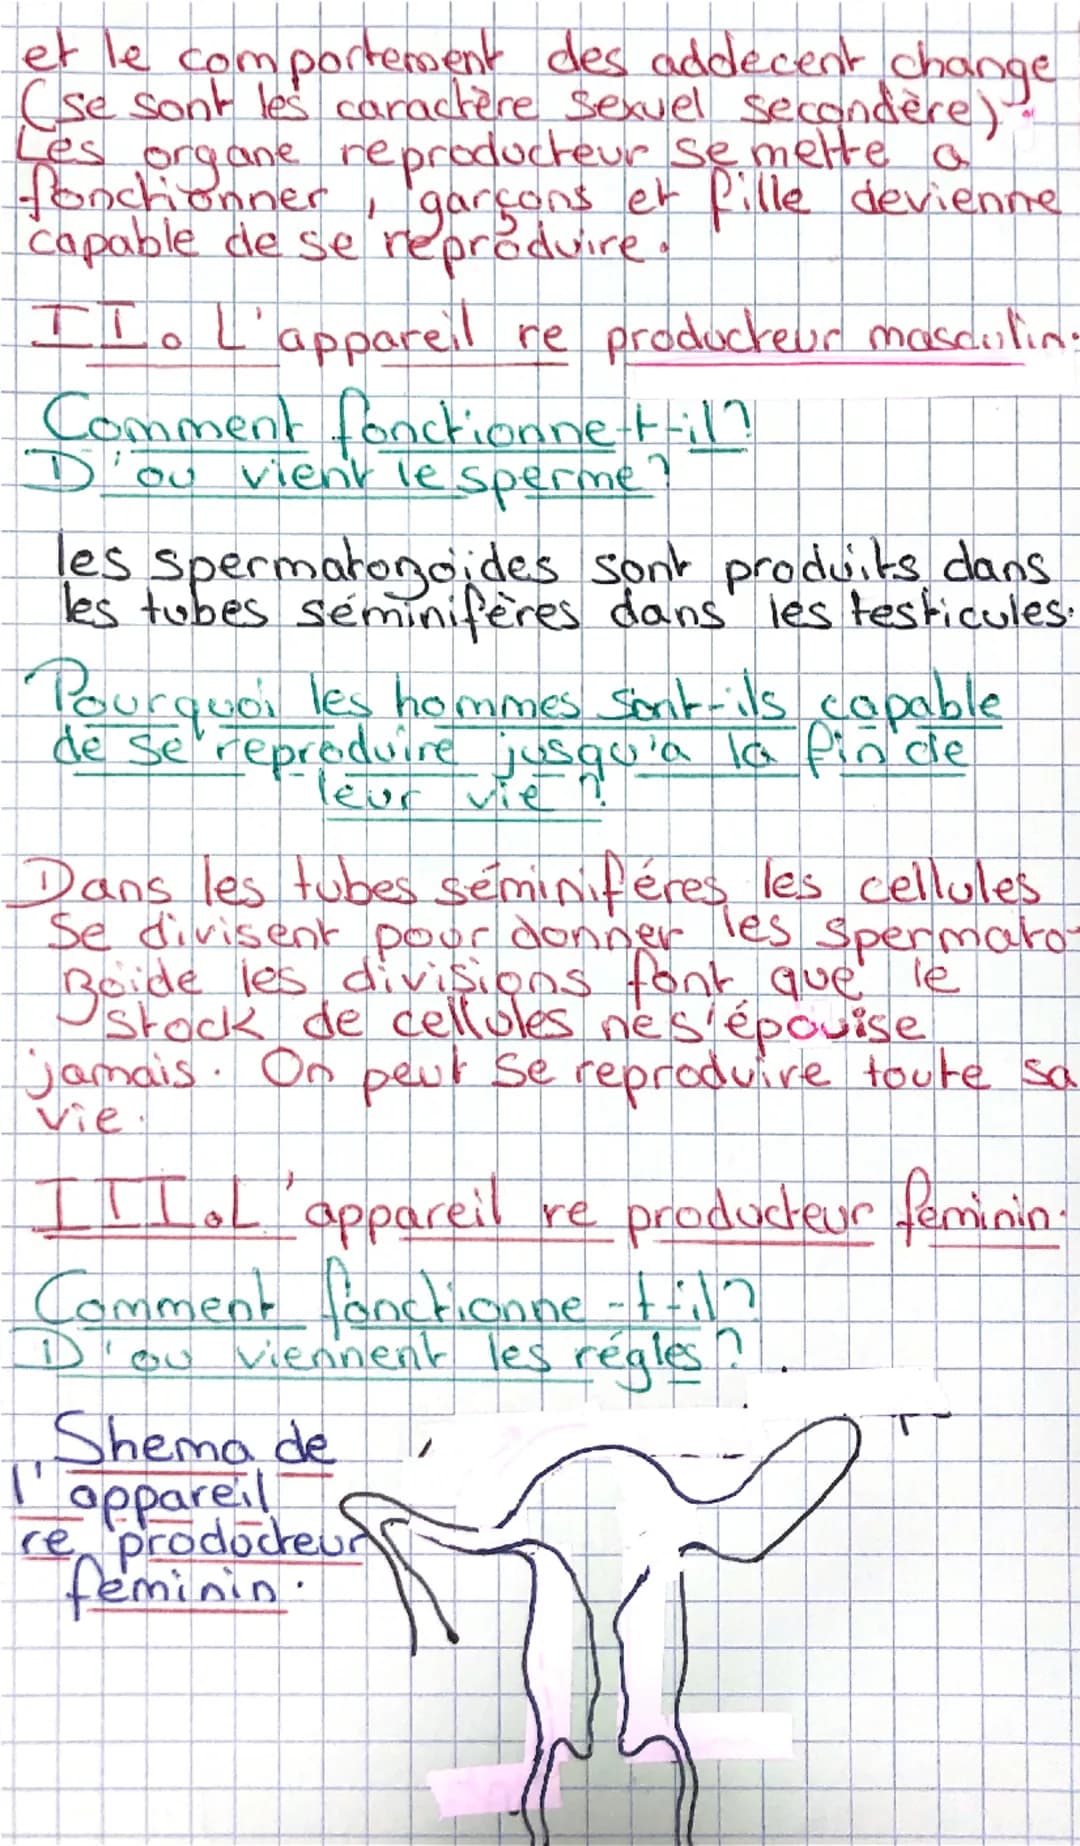 et le comportement des addecent change
(se sont les caractère sexuel secondère).
Les organe reproducteur se mette a
fonctionner, garçons et fille devienne
capable de se reproduire.
II. L'appareil re producteur masculin.
Comment fonctionne-t-il?
D'ou vient le sperme?
les spermatozoides sont produits dans
les tubes séminifères dans les testicules.
Pourquoi les hommes sont-ils capable
de se reproduire jusqu'a la fin de
leur vie?
Dans les tubes séminiféres les cellules
se divisent pour donner les spermato-
zoide les divisions font que le
stock de cellules ne s'épouise
jamais. On peut se reproduire toute sa
vie.
III. L'appareil re producteur féminin.
Comment fonctionne-t-il?
D'ou viennent les régles?
Shema de
l'appareil
re producteur
feminin.